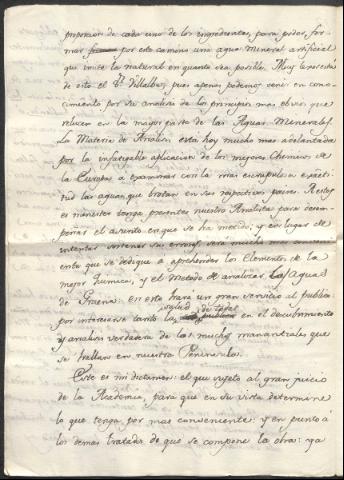 proporcion de cada uno de los ingredientes, para poder, for-
mar por este camino una agua mineral artificial
que imite la natural en quanto sea posible. Muy lexos esta
de esto el Dr. Villalba, pues apenas podemos venir en cono-
cimiento por su analisis de los principios mas obvios que
relucen en la mayor parte de las Aguas Minerales.
La Materia de Analisis está hoy mucho mas adelantada
por la infatigable aplicacion de los mejores Chimicos de
la Europa a examinar con la mas escrupulosa exacti-
tud las aguas que brotan en sus respectivos paises. A estos
es menester tenga presentes nuestro Analista para desem-
peñar el asunto en que se ha metido; y en lugar de
intentar sostener sus errores, será mucho
que se dedique a aprehender los Elementos de la
mejor Quimica, y el Metodo de analizar las Aguas
de Graena: en esto hará un gran servicio al publico
por interesarse tanto la salud de todos en el descubrimiento
y analisis verdadera de los muchos manantiales que
se hallan en nuestra Peninsula.
Este es mi dictamen: el que sujeto al gran juicio
de la Academia, para que en su vista determine
lo que tenga por mas conveniente: y en punto á
los demas tratados de que se compone la obra: ya